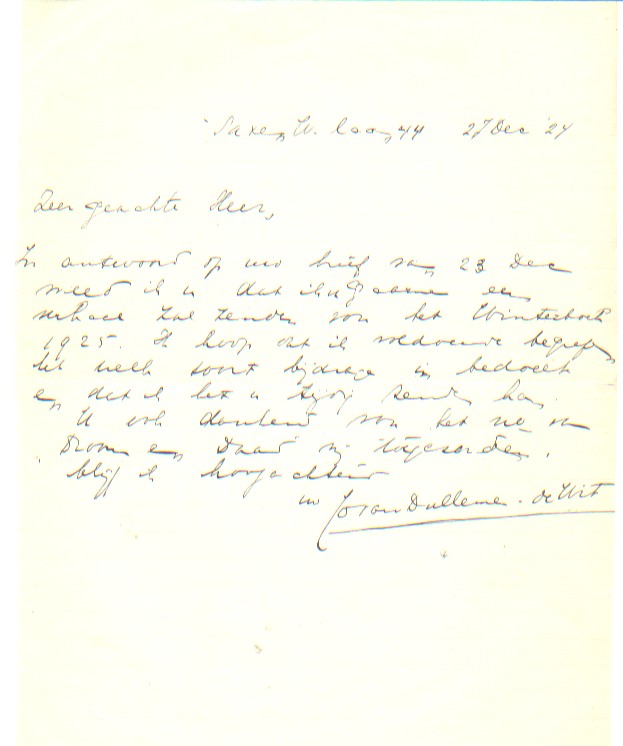 Saxen W. laan 44 27 Dec '24
Zeer geachte Heer,
In antwoord op uw brief van 23 Dec
meld ik u dat ik u gaarne een
verhaal zal zenden voor het Winterboek
1925. Ik hoop dat ik voldoende begrepen
heb welk soort bijdrage u bedoelt
en dat ik het u tijdig zenden kan.
U ook dankend voor het no van
Droom en Daad mij toegezonden,
blijf ik hoogachtend
uw Jo van Dullemen. de Wit